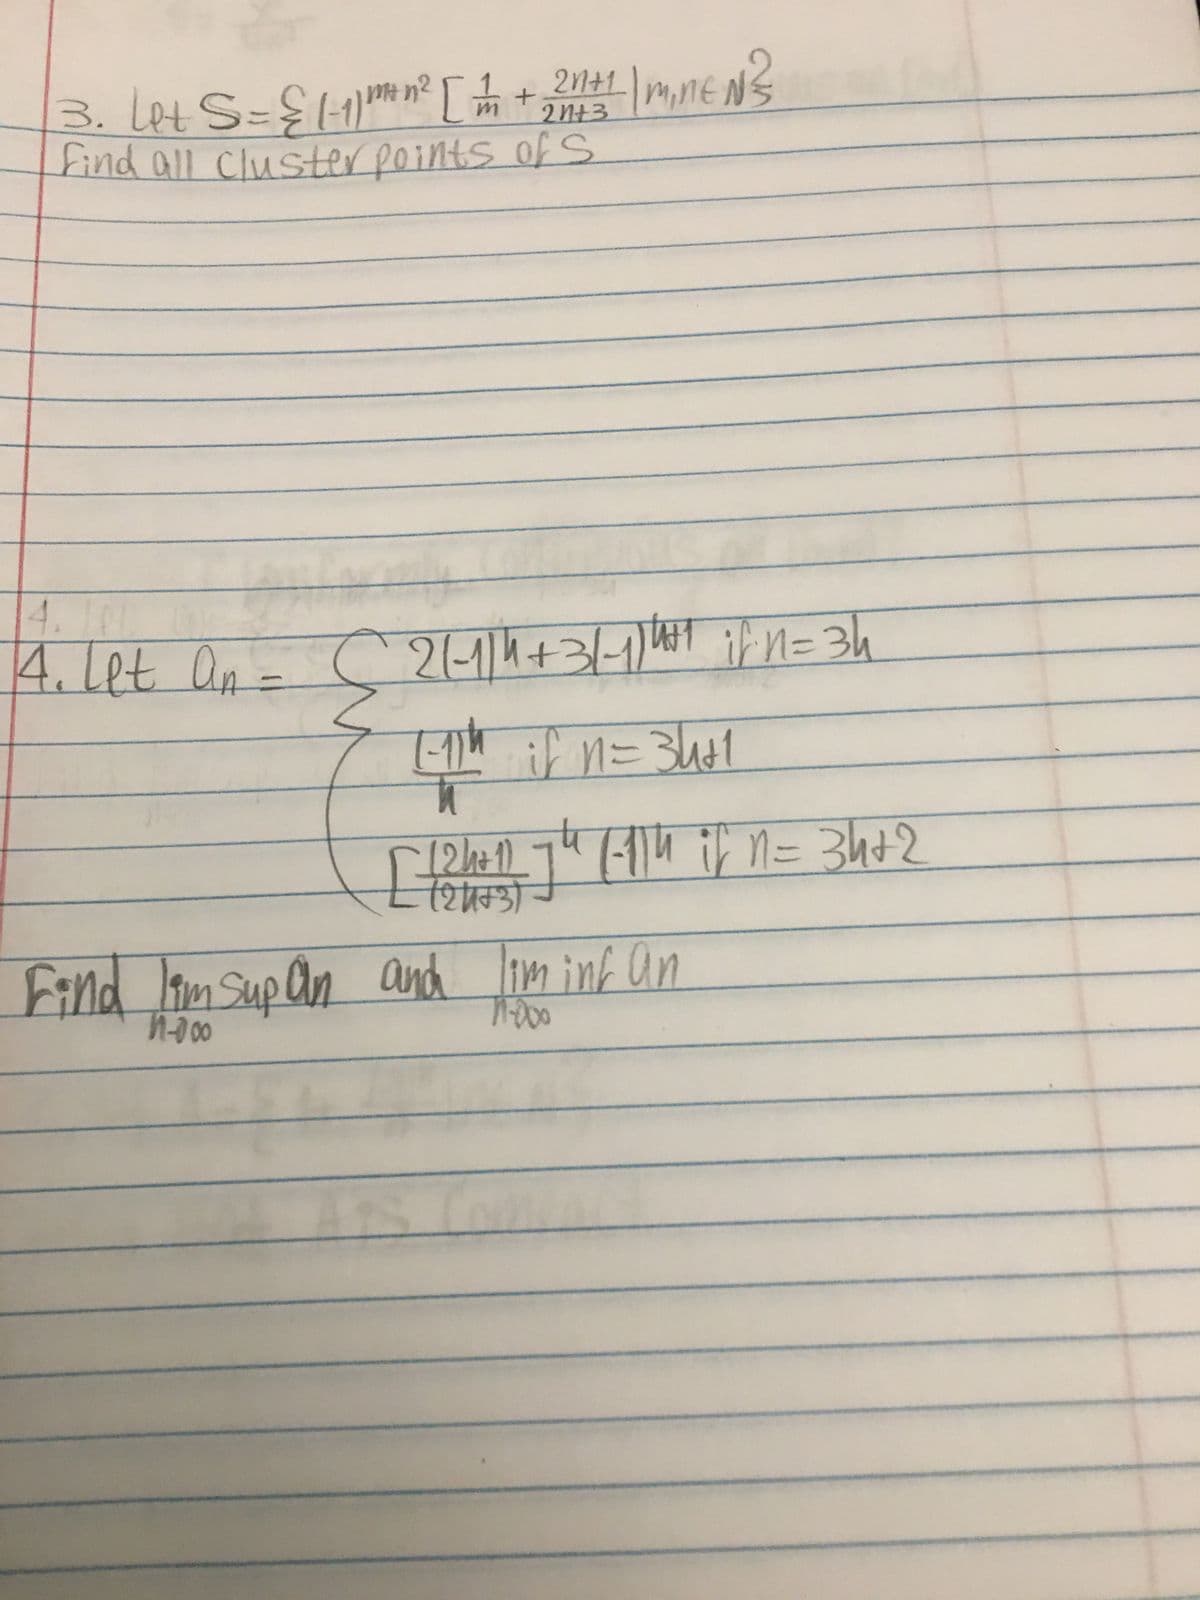 3. Let S = { (-1)^{m+n²} [ 1/m + 2n+1/2n+3 | m,n ∈ N }
Find all cluster points of S
4. Let
4. Let an = { 2(-1)^k + 3(-1)^{k+1} if n = 3k
(-1)^k/k if n = 3k+1
[ (2k+1)/(2k+3) ]^k (-1)^k if n = 3k+2
Find lim sup an and lim inf an
n→∞ n→∞